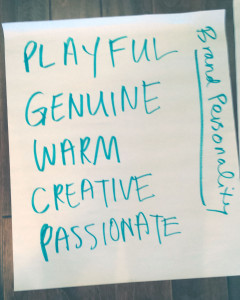 PLAYFUL
GENUINE
WARM
CREATIVE
PASSIONATE
Brand Personality